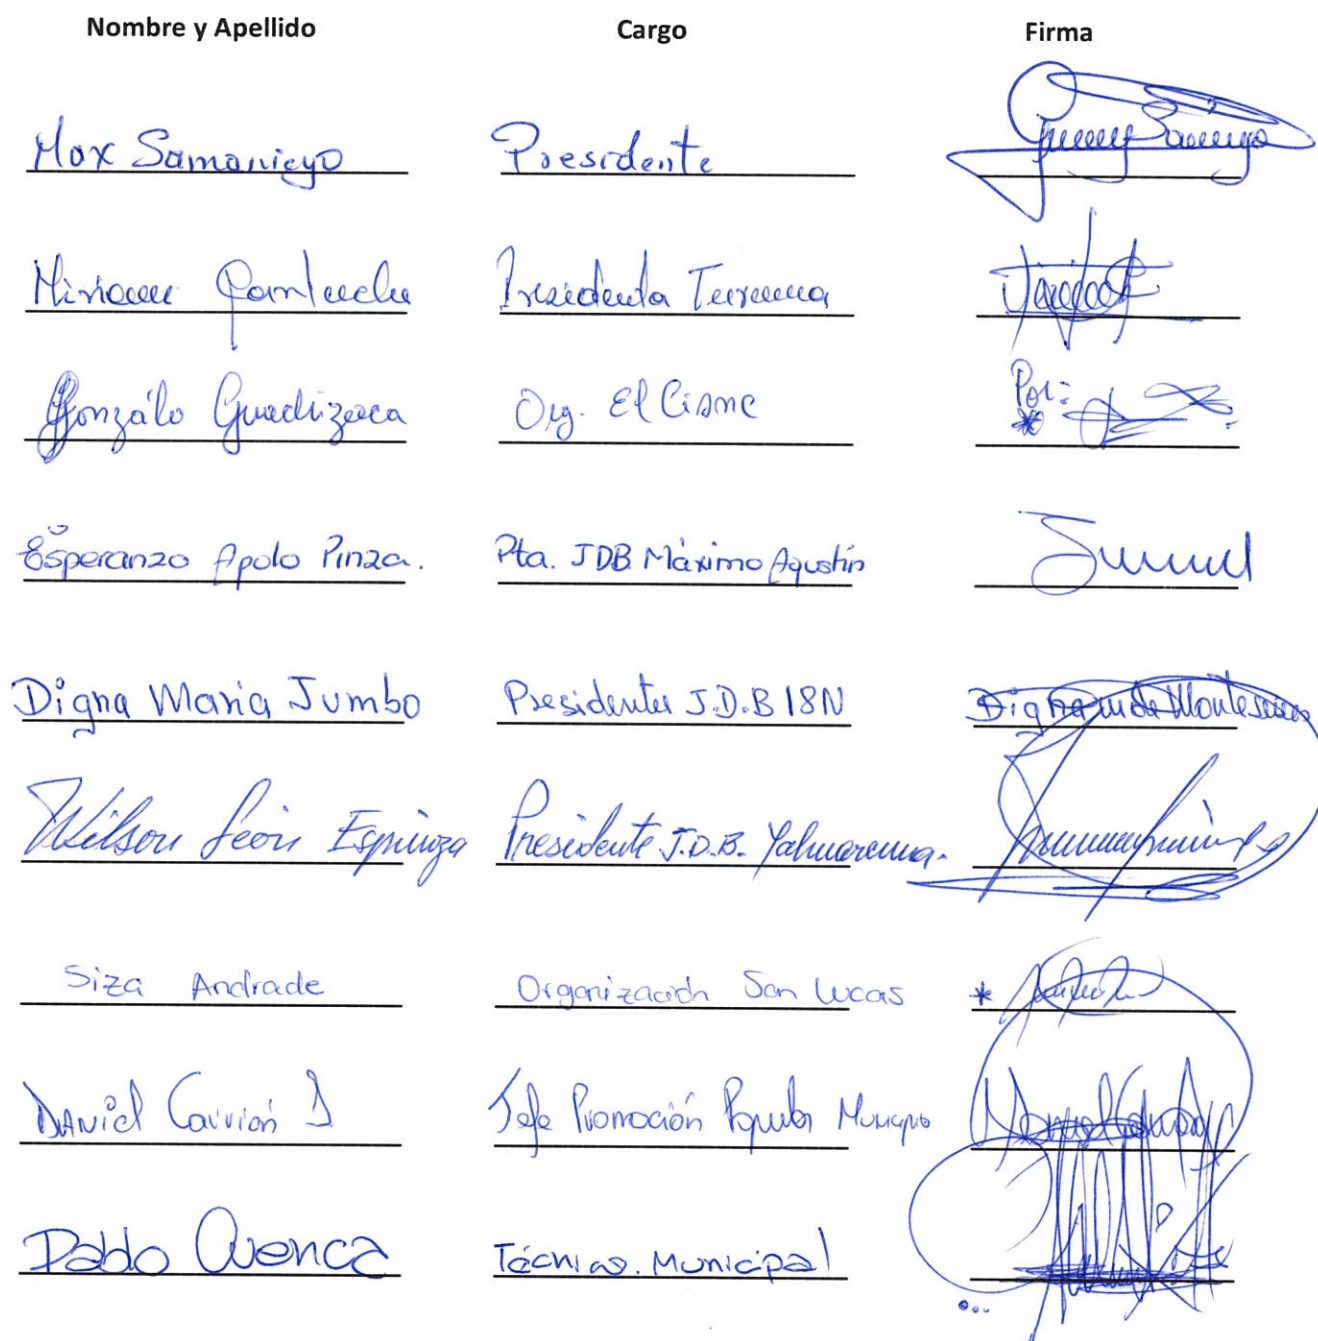 Nombre y Apellido Cargo Firma
Max Samaniego Presidente
Miriam Presidenta
Gonzálo Guadizaca Org. El Cisne Por:
Esperanza Apolo Pinza. Pta. JDB Máximo Agustín
Digna Maria Jumbo Presidenta J.D.B 18N Digna
Wilson León Espinoza Presidente J.D.B.
Siza Andrade Organización San Lucas *
Daniel Carrión J Jefe Promoción Popular Municipio
Pablo Cuenca Técnico. Municipal